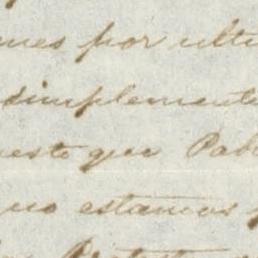 ues por ulti
simplemente
uesto que Pab
no estamos p